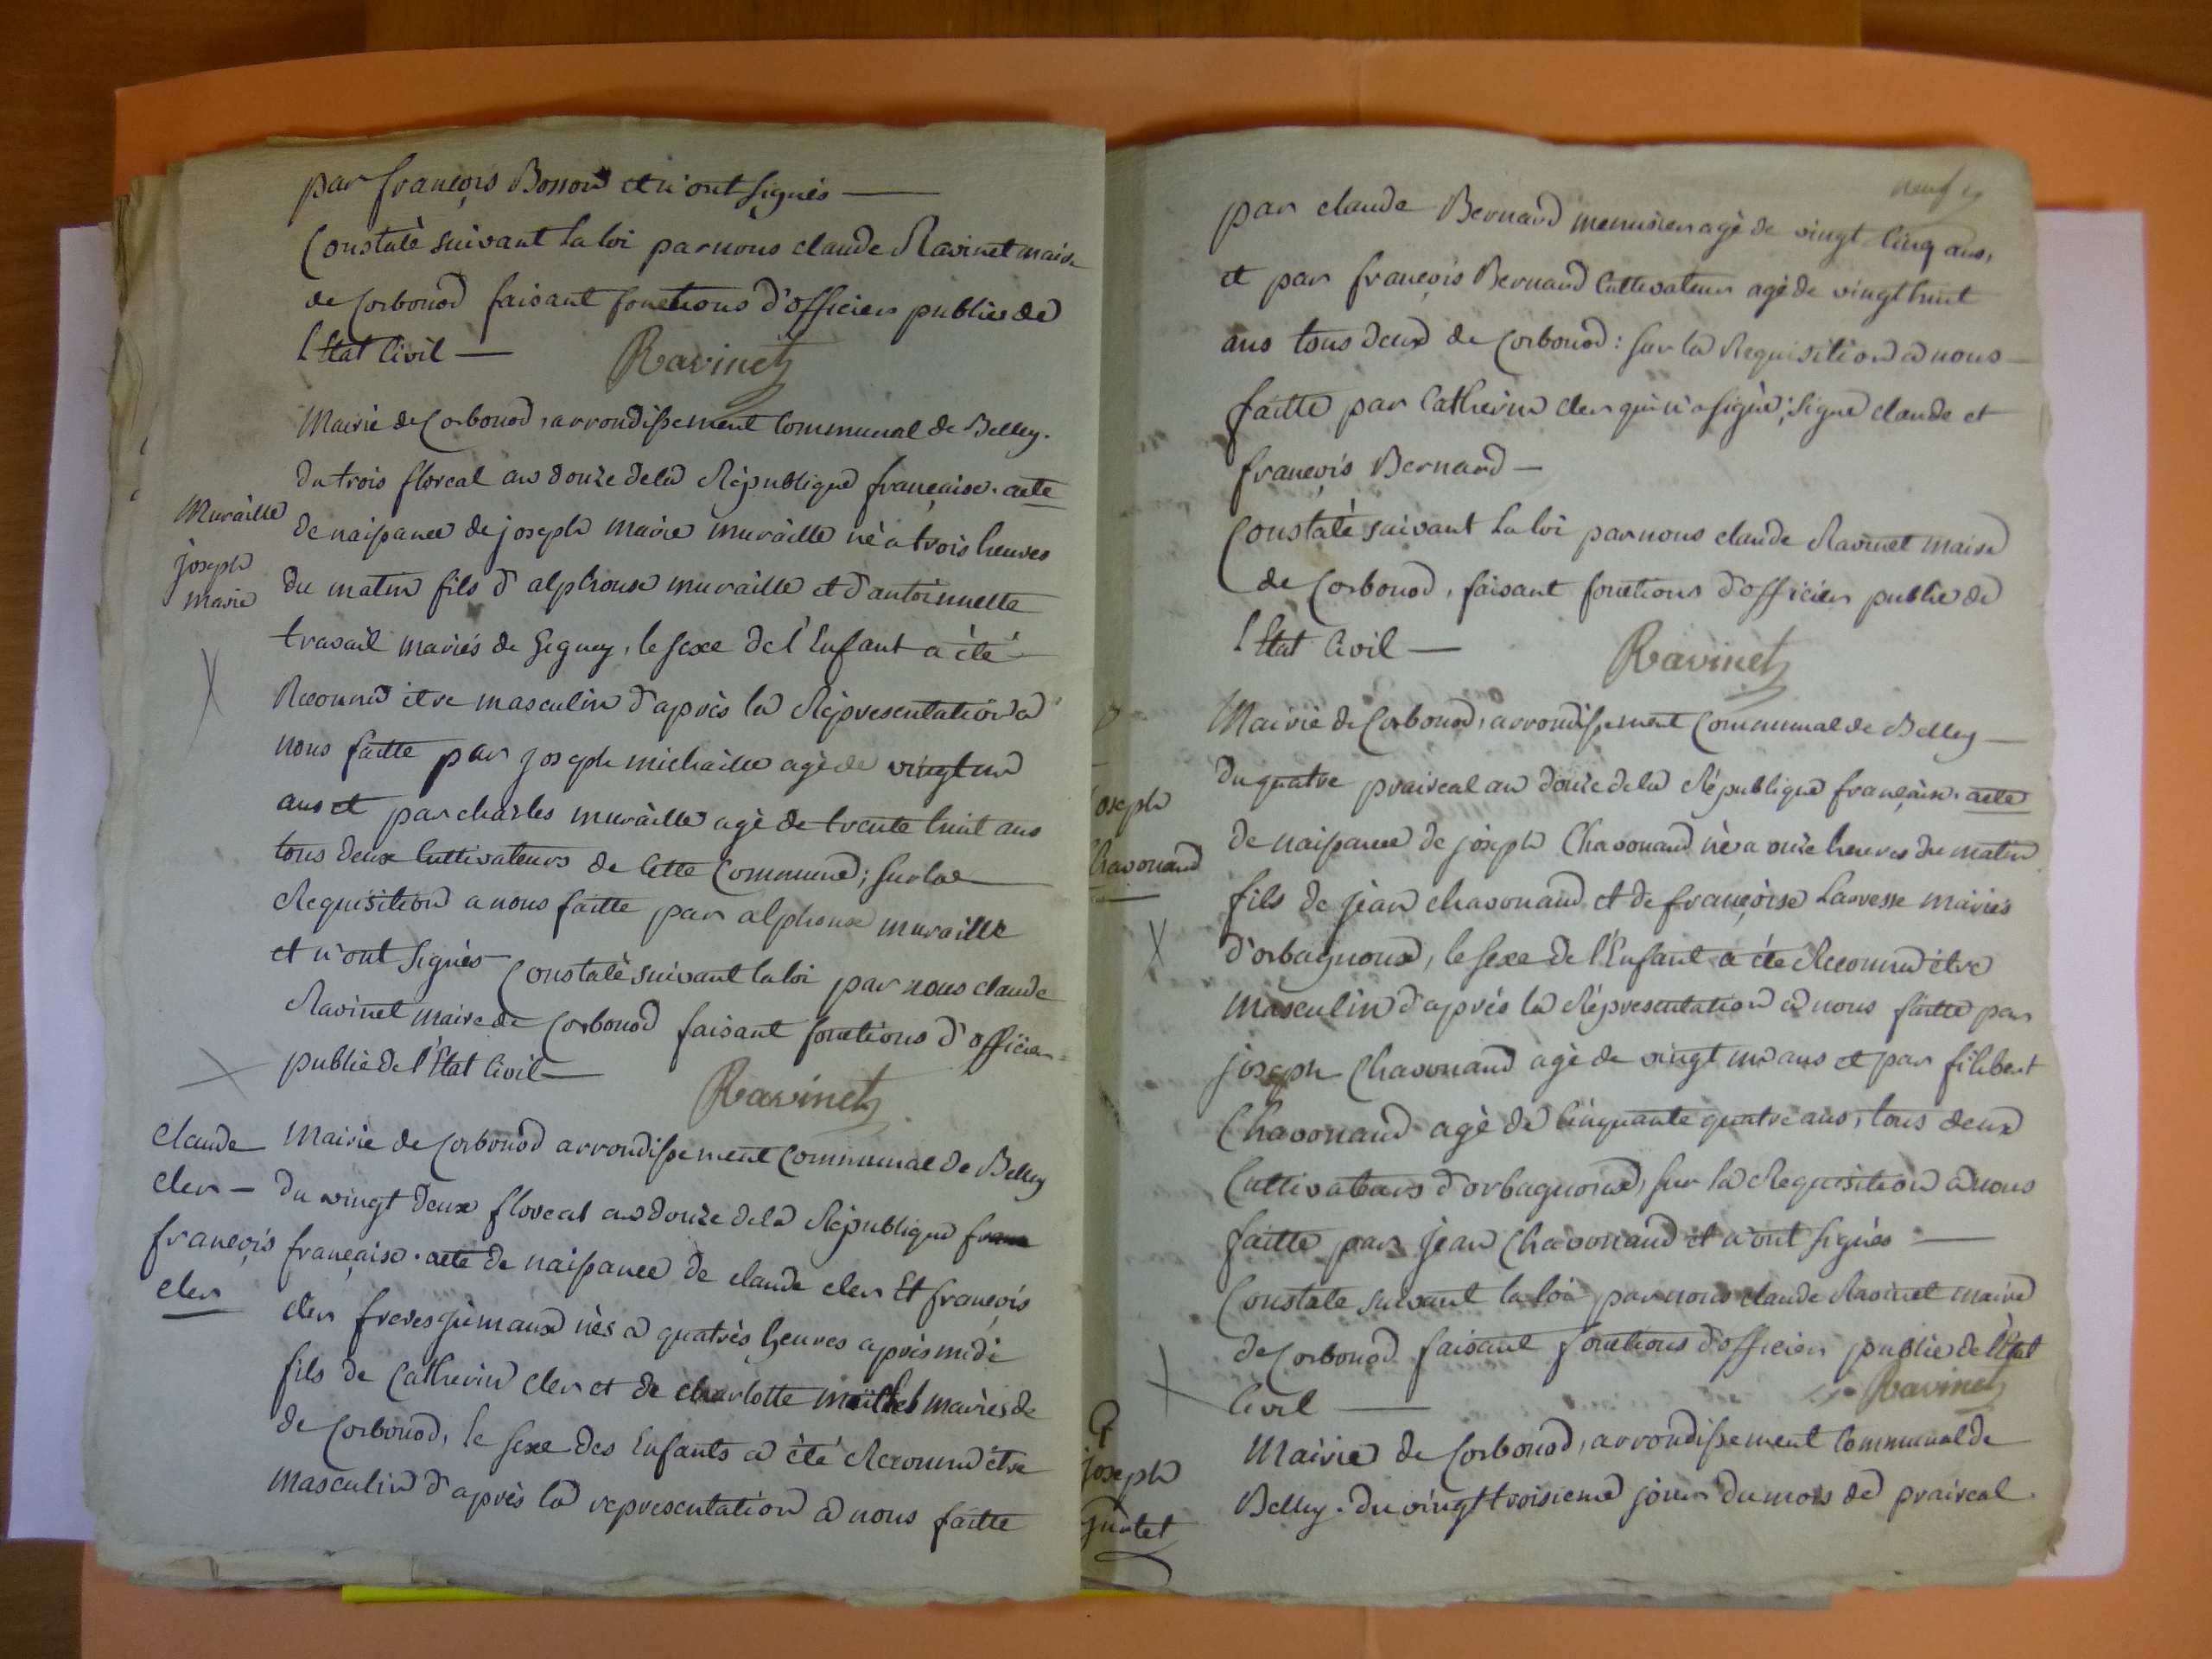 par françois Bosson et n'ont signés —
Constatè suivant la loi par nous claude Ravinet maire
de Corbonod faisant fonctions d'officier public de
l'Etat Civil — Ravinet
Mairie de Corbonod, arrondissement Communal de Belley.
du trois floreal an douze de la Republique française. acte
Muraille
joseph
marie
de naissance de joseph marie muraille né a trois heures
du matin fils d'alphonse muraille et d'antoinnette
travail mariés de Gignez, le sexe de l'Enfant a été
Reconnu etre masculin d'après la Representation a
nous faitte par joseph michaille agé de vingt un
ans et par charles muraille agé de trente huit ans
tous deux Cultivateurs de Cette Commune; sur la
Requisition a nous faitte par alphonse muraille
et n'ont signés Constatè suivant la loi par nous claude
Ravinet maire de Corbonod faisant fonctions d'officier
public de l'Etat Civil — Ravinet
claude
cler —
françois
cler
Mairie de Corbonod arrondissement Communal de Belley
du vingt deux floreal an douze de la Republique
française. acte de naissance de claude cler Et françois
cler freres jumaux nés a quatrès heures après midi
fils de Catherin cler et de charlotte mariés de
de Corbonod, le sexe des Enfants a été Reconnu être
masculin d'après la representation a nous faitte
neuf
par claude Bernard menusier agé de vingt Cinq ans,
et par françois Bernard Cultivateur agé de vingt huit
ans tous deux de Corbonod: sur la Requisition a nous
faitte par Catherin cler qui n'a signé; signé claude et
françois Bernard —
Constatè suivant la loi par nous claude Ravinet maire
de Corbonod, faisant fonctions d'officier public de
l'Etat Civil — Ravinet
Mairie de Corbonod, arrondissement Communal de Belley —
du quatre praireal an douze de la Republique française. acte
joseph
Chavonand
de naissance de joseph Chavonand né a onze heures du matin
fils de jean chavonand et de françoise Larvesse mariés
d'orbagnoux, le sexe de l'Enfant a été Reconnu être
masculin d'après la Representation a nous faitte par
joseph Chavonand agé de vingt un ans et par filibert
Chavonand agé de Cinquante quatre ans, tous deux
Cultivateurs d'orbagnoux, sur la Requisition a nous
faitte par jean Chavonand et n'ont signés —
Constate suivant la loi par nous claude Ravinet maire
de Corbonod faisant fonctions d'officier public de l'Etat
Civil — Ravinet
joseph
Mairie de Corbonod, arrondissement Communal de
Belley. du vingt troisieme jour du mois de praireal.